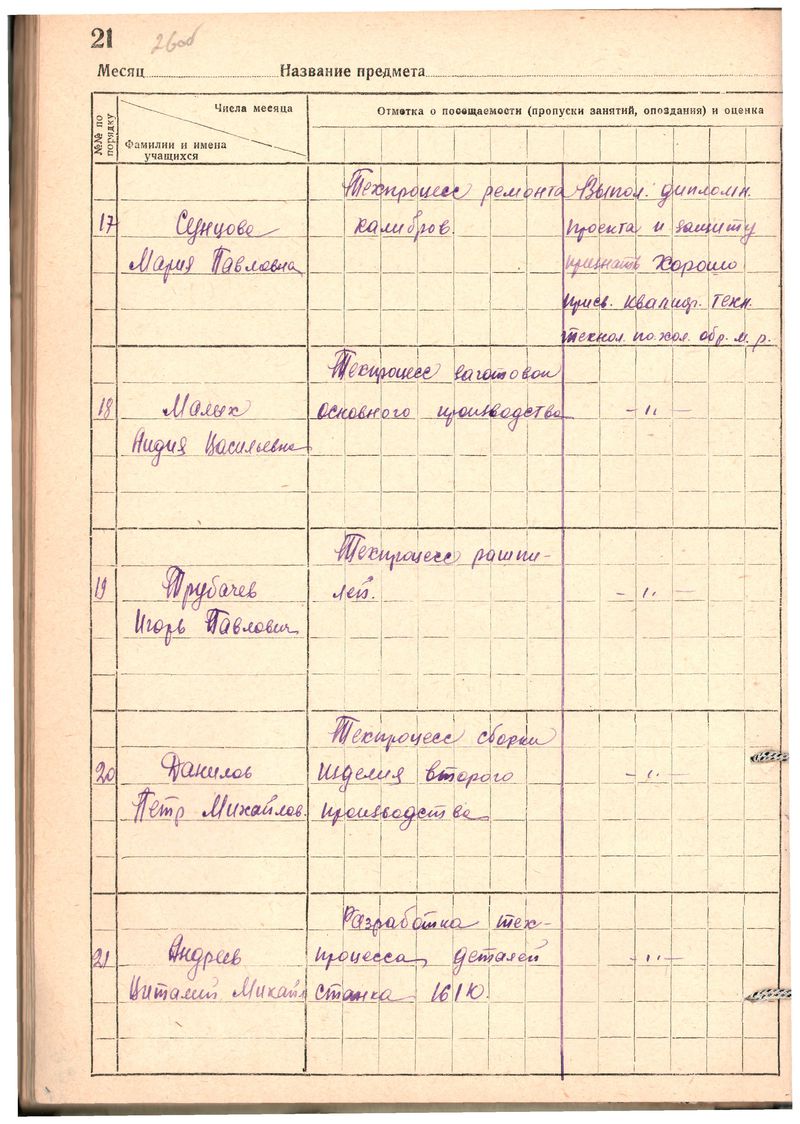 21
26об
Месяц Название предмета
№№ по порядку
Числа месяца
Фамилии и имена учащихся
Отметка о посещаемости (пропуски занятий, опоздания) и оценка
Техпроцесс ремонта Выпол. дипломн.
17 Сунцова калибров. проекта и защиту
Мария Павловна признать хорошо
присв. квалиф. техн.
технол. по хол. обр. м. р.
Техпроцесс заготовок
18 Малых основного производства - " -
Лидия Васильевна
Техпроцесс рашпи-
19 Трубачев лей. - " -
Игорь Павлович
Техпроцесс сборки
20 Данилов изделия второго - " -
Петр Михайлов. производства
Разработка тех-
21 Андреев процесса деталей - " -
Виталий Михайл станка 161Ю.